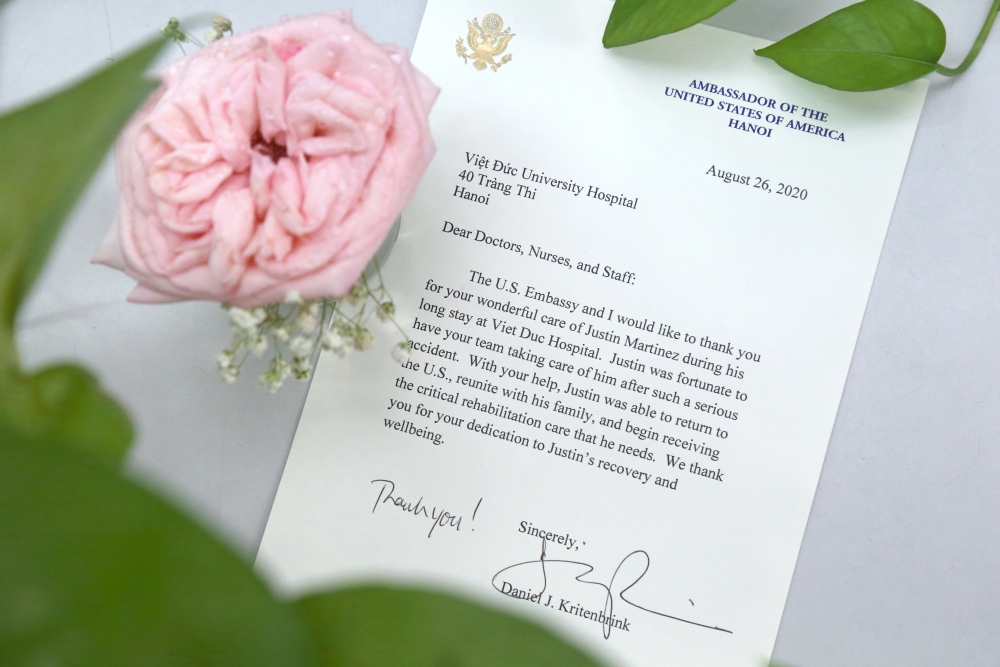 AMBASSADOR OF THE
UNITED STATES OF AMERICA
HANOI
August 26, 2020
Việt Đức University Hospital
40 Tràng Thi
Hanoi
Dear Doctors, Nurses, and Staff:
The U.S. Embassy and I would like to thank you
for your wonderful care of Justin Martinez during his
long stay at Viet Duc Hospital. Justin was fortunate to
have your team taking care of him after such a serious
accident. With your help, Justin was able to return to
the U.S., reunite with his family, and begin receiving
the critical rehabilitation care that he needs. We thank
you for your dedication to Justin's recovery and
wellbeing.
Thank you!
Sincerely,
Daniel J. Kritenbrink